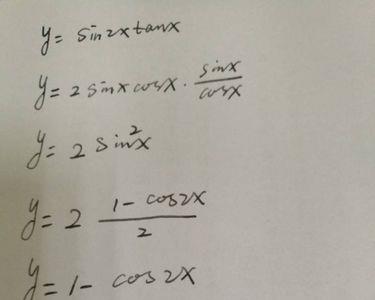 y = sin2x tanx
y = 2 sinx cosx · sinx/cosx
y = 2 sin²x
y = 2 (1 - cos2x)/2
y = 1 - cos2x